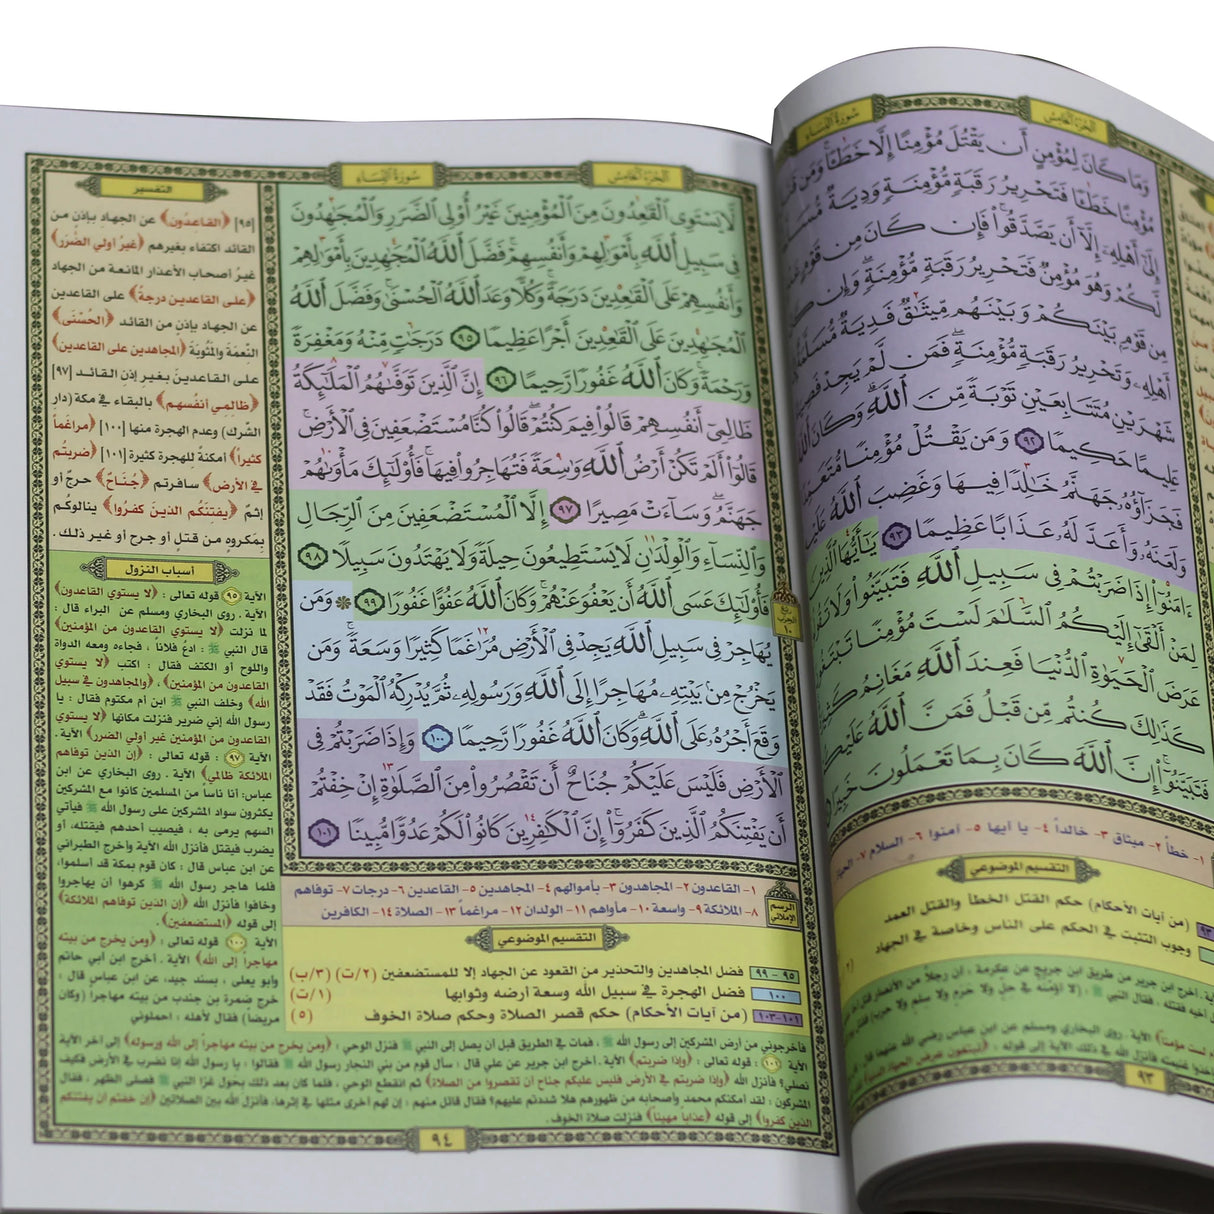 الجزء الخامس
سورة النساء
وَمَا كَانَ لِمُؤْمِنٍ أَن يَقْتُلَ مُؤْمِنًا إِلَّا خَطَـًٔا وَمَن قَتَلَ
مُؤْمِنًا خَطَـًٔا فَتَحْرِيرُ رَقَبَةٍ مُّؤْمِنَةٍ وَدِيَةٌ
إِلَىٰٓ أَهْلِهِۦٓ إِلَّآ أَن يَصَّدَّقُوا۟ فَإِن كَانَ مِن قَوْمٍ
لَّكُمْ وَهُوَ مُؤْمِنٌ فَتَحْرِيرُ رَقَبَةٍ مُّؤْمِنَةٍ وَإِن
مِن قَوْمٍۭ بَيْنَكُمْ وَبَيْنَهُم مِّيثَٰقٌ فَدِيَةٌ مُّسَلَّمَةٌ
أَهْلِهِۦ وَتَحْرِيرُ رَقَبَةٍ مُّؤْمِنَةٍ فَمَن لَّمْ يَجِدْ فَصِيَامُ
شَهْرَيْنِ مُتَتَابِعَيْنِ تَوْبَةً مِّنَ ٱللَّهِ وَكَانَ ٱللَّهُ
عَلِيمًا حَكِيمًا ٩٢ وَمَن يَقْتُلْ مُؤْمِنًا مُّتَعَمِّدًا
فَجَزَآؤُهُۥ جَهَنَّمُ خَٰلِدًا فِيهَا وَغَضِبَ ٱللَّهُ عَلَيْهِ
وَلَعَنَهُۥ وَأَعَدَّ لَهُۥ عَذَابًا عَظِيمًا ٩٣ يَٰٓأَيُّهَا ٱلَّذِينَ
ءَامَنُوٓا۟ إِذَا ضَرَبْتُمْ فِى سَبِيلِ ٱللَّهِ فَتَبَيَّنُوا۟ وَلَا تَقُولُوا۟
لِمَنْ أَلْقَىٰٓ إِلَيْكُمُ ٱلسَّلَٰمَ لَسْتَ مُؤْمِنًا تَبْتَغُونَ
عَرَضَ ٱلْحَيَوٰةِ ٱلدُّنْيَا فَعِندَ ٱللَّهِ مَغَانِمُ كَثِيرَةٌ
كَذَٰلِكَ كُنتُم مِّن قَبْلُ فَمَنَّ ٱللَّهُ عَلَيْكُمْ
فَتَبَيَّنُوٓا۟ إِنَّ ٱللَّهَ كَانَ بِمَا تَعْمَلُونَ خَبِيرًا
١- خطأ ٢- ميثاق ٣- خالداً ٤- يا أيها ٥- آمنوا ٦- السلام ٧- الحياة
التقسيم الموضوعي
٩٣ (من آيات الأحكام) حكم القتل الخطأ والقتل العمد
وجوب التثبت في الحكم على الناس وخاصة في الجهاد
٩٣
الجزء الخامس
سورة النساء
لَّا يَسْتَوِى ٱلْقَٰعِدُونَ مِنَ ٱلْمُؤْمِنِينَ غَيْرُ أُو۟لِى ٱلضَّرَرِ وَٱلْمُجَٰهِدُونَ
فِى سَبِيلِ ٱللَّهِ بِأَمْوَٰلِهِمْ وَأَنفُسِهِمْ فَضَّلَ ٱللَّهُ ٱلْمُجَٰهِدِينَ بِأَمْوَٰلِهِمْ
وَأَنفُسِهِمْ عَلَى ٱلْقَٰعِدِينَ دَرَجَةً وَكُلًّا وَعَدَ ٱللَّهُ ٱلْحُسْنَىٰ وَفَضَّلَ ٱللَّهُ
ٱلْمُجَٰهِدِينَ عَلَى ٱلْقَٰعِدِينَ أَجْرًا عَظِيمًا ٩٥ دَرَجَٰتٍ مِّنْهُ وَمَغْفِرَةً
وَرَحْمَةً وَكَانَ ٱللَّهُ غَفُورًا رَّحِيمًا ٩٦ إِنَّ ٱلَّذِينَ تَوَفَّىٰهُمُ ٱلْمَلَٰٓئِكَةُ
ظَالِمِىٓ أَنفُسِهِمْ قَالُوا۟ فِيمَ كُنتُمْ قَالُوا۟ كُنَّا مُسْتَضْعَفِينَ فِى ٱلْأَرْضِ
قَالُوٓا۟ أَلَمْ تَكُنْ أَرْضُ ٱللَّهِ وَٰسِعَةً فَتُهَاجِرُوا۟ فِيهَا فَأُو۟لَٰٓئِكَ مَأْوَىٰهُمْ
جَهَنَّمُ وَسَآءَتْ مَصِيرًا ٩٧ إِلَّا ٱلْمُسْتَضْعَفِينَ مِنَ ٱلرِّجَالِ
وَٱلنِّسَآءِ وَٱلْوِلْدَٰنِ لَا يَسْتَطِيعُونَ حِيلَةً وَلَا يَهْتَدُونَ سَبِيلًا ٩٨
فَأُو۟لَٰٓئِكَ عَسَى ٱللَّهُ أَن يَعْفُوَ عَنْهُمْ وَكَانَ ٱللَّهُ عَفُوًّا غَفُورًا ٩٩ ۞ وَمَن
يُهَاجِرْ فِى سَبِيلِ ٱللَّهِ يَجِدْ فِى ٱلْأَرْضِ مُرَٰغَمًا كَثِيرًا وَسَعَةً وَمَن
يَخْرُجْ مِنۢ بَيْتِهِۦ مُهَاجِرًا إِلَى ٱللَّهِ وَرَسُولِهِۦ ثُمَّ يُدْرِكْهُ ٱلْمَوْتُ فَقَدْ
وَقَعَ أَجْرُهُۥ عَلَى ٱللَّهِ وَكَانَ ٱللَّهُ غَفُورًا رَّحِيمًا ١٠٠ وَإِذَا ضَرَبْتُمْ فِى
ٱلْأَرْضِ فَلَيْسَ عَلَيْكُمْ جُنَاحٌ أَن تَقْصُرُوا۟ مِنَ ٱلصَّلَوٰةِ إِنْ خِفْتُمْ
أَن يَفْتِنَكُمُ ٱلَّذِينَ كَفَرُوٓا۟ إِنَّ ٱلْكَٰفِرِينَ كَانُوا۟ لَكُمْ عَدُوًّا مُّبِينًا ١٠١
ربع الحزب ١٠
الرسم الإملائي
١- القاعدون ٢- المجاهدون ٣- بأموالهم ٤- المجاهدين ٥- القاعدين ٦- درجات ٧- توفاهم
٨- الملائكة ٩- واسعة ١٠- مأواهم ١١- الولدان ١٢- مراغماً ١٣- الصلاة ١٤- الكافرين
التقسيم الموضوعي
٩٥ - ٩٩ فضل المجاهدين والتحذير من القعود عن الجهاد إلا للمستضعفين (٢/ت) (٣/ب)
١٠٠ فضل الهجرة في سبيل الله وسعة أرضه وثوابها (١/ت)
١٠١-١٠٣ (من آيات الأحكام) حكم قصر الصلاة وحكم صلاة الخوف (٥)
التفسير
[٩٥] ﴿القاعدون﴾ عن الجهاد بإذن من
القائد اكتفاء بغيرهم ﴿غير أولي الضرر﴾
غير أصحاب الأعذار المانعة من الجهاد
﴿على القاعدين درجة﴾ على القاعدين
عن الجهاد بإذن من القائد ﴿الحُسْنَى﴾
النِّعمَة والمَثُوبَة ﴿المجاهدين على القاعدين﴾
على القاعدين بغير إذن القائد [٩٧]
﴿ظالِمِي أنفُسهم﴾ بالبقاء في مكة (دار
الشرك) وعدم الهجرة منها [١٠٠] ﴿مراغماً
كثيراً﴾ أمكنةً للهجرة كثيرة [١٠١] ﴿ضربتم
في الأرض﴾ سافرتم ﴿جُنَاحٌ﴾ حرجٌ أو
إثمٌ ﴿يفتنَكم الذين كفروا﴾ ينالوكم
بمكروه من قتلٍ أو جرح أو غير ذلك.
أسباب النزول
الآية ٩٥ قوله تعالى: ﴿لا يستوي القاعدون﴾
الآية. روى البخاري ومسلم عن البراء قال:
لما نزلت ﴿لا يستوي القاعدون من المؤمنين﴾
قال النبي ﷺ: ادعُ فلاناً، فجاءه ومعه الدواة
واللوح أو الكتف فقال: اكتب ﴿لا يستوي
القاعدون من المؤمنين﴾، ﴿والمجاهدون في سبيل
الله﴾ وخلف النبي ﷺ ابن أم مكتوم فقال: يا
رسول الله إني ضرير فنزلت مكانها ﴿لا يستوي
القاعدون من المؤمنين غير أولي الضرر﴾ الآية.
الآية ٩٧: قوله تعالى: ﴿إن الذين توفاهم
الملائكة ظالمي﴾ الآية. روى البخاري عن ابن
عباس: أنا ناساً من المسلمين كانوا مع المشركين
يكثرون سواد المشركين على رسول الله ﷺ فيأتي
السهم يرمى به، فيصيب أحدهم فيقتله، أو
يضرب فيقتل فأنزل الله الآية وأخرج الطبراني
عن ابن عباس قال: كان قوم بمكة قد أسلموا،
فلما هاجر رسول الله ﷺ كرهوا أن يهاجروا
وخافوا فأنزل الله ﴿إن الذين توفاهم الملائكة﴾
إلى قوله ﴿المستضعفين﴾.
الآية ١٠٠ قوله تعالى: ﴿ومن يخرج من بيته
مهاجراً إلى الله﴾ الآية. أخرج ابن أبي حاتم
وأبو يعلى، بسند جيد، عن ابن عباس قال:
خرج ضمرة بن جندب من بيته مهاجراً (وكان
مريضاً) فقال لأهله: احملوني
فأخرجوني من أرض المشركين إلى رسول الله ﷺ، فمات في الطريق قبل أن يصل إلى النبي ﷺ فنزل الوحي: ﴿ومن يخرج من بيته مهاجراً إلى الله ورسوله﴾ إلى آخر الآية
١٠١: قوله تعالى: ﴿وإذا ضربتم﴾ الآية. أخرج ابن جرير عن علي قال: سأل قوم من بني النجار رسول الله ﷺ فقالوا: يا رسول الله إنا نضرب في الأرض فكيف
نصلي؟ فأنزل الله ﴿وإذا ضربتم في الأرض فليس عليكم جناح أن تقصروا من الصلاة﴾ ثم انقطع الوحي، فلما كان بعد ذلك بحول غزا النبي ﷺ فصلى الظهر، فقال
المشركون: لقد أمكنكم محمد وأصحابه من ظهورهم هلا شددتم عليهم؟ فقال قائل منهم: إن لهم أخرى مثلها في إثرها، فأنزل الله بين الصلاتين ﴿إن خفتم أن يفتنكم
الذين كفروا﴾ إلى قوله ﴿عذاباً مهيناً﴾ فنزلت صلاة الخوف.
٩٤